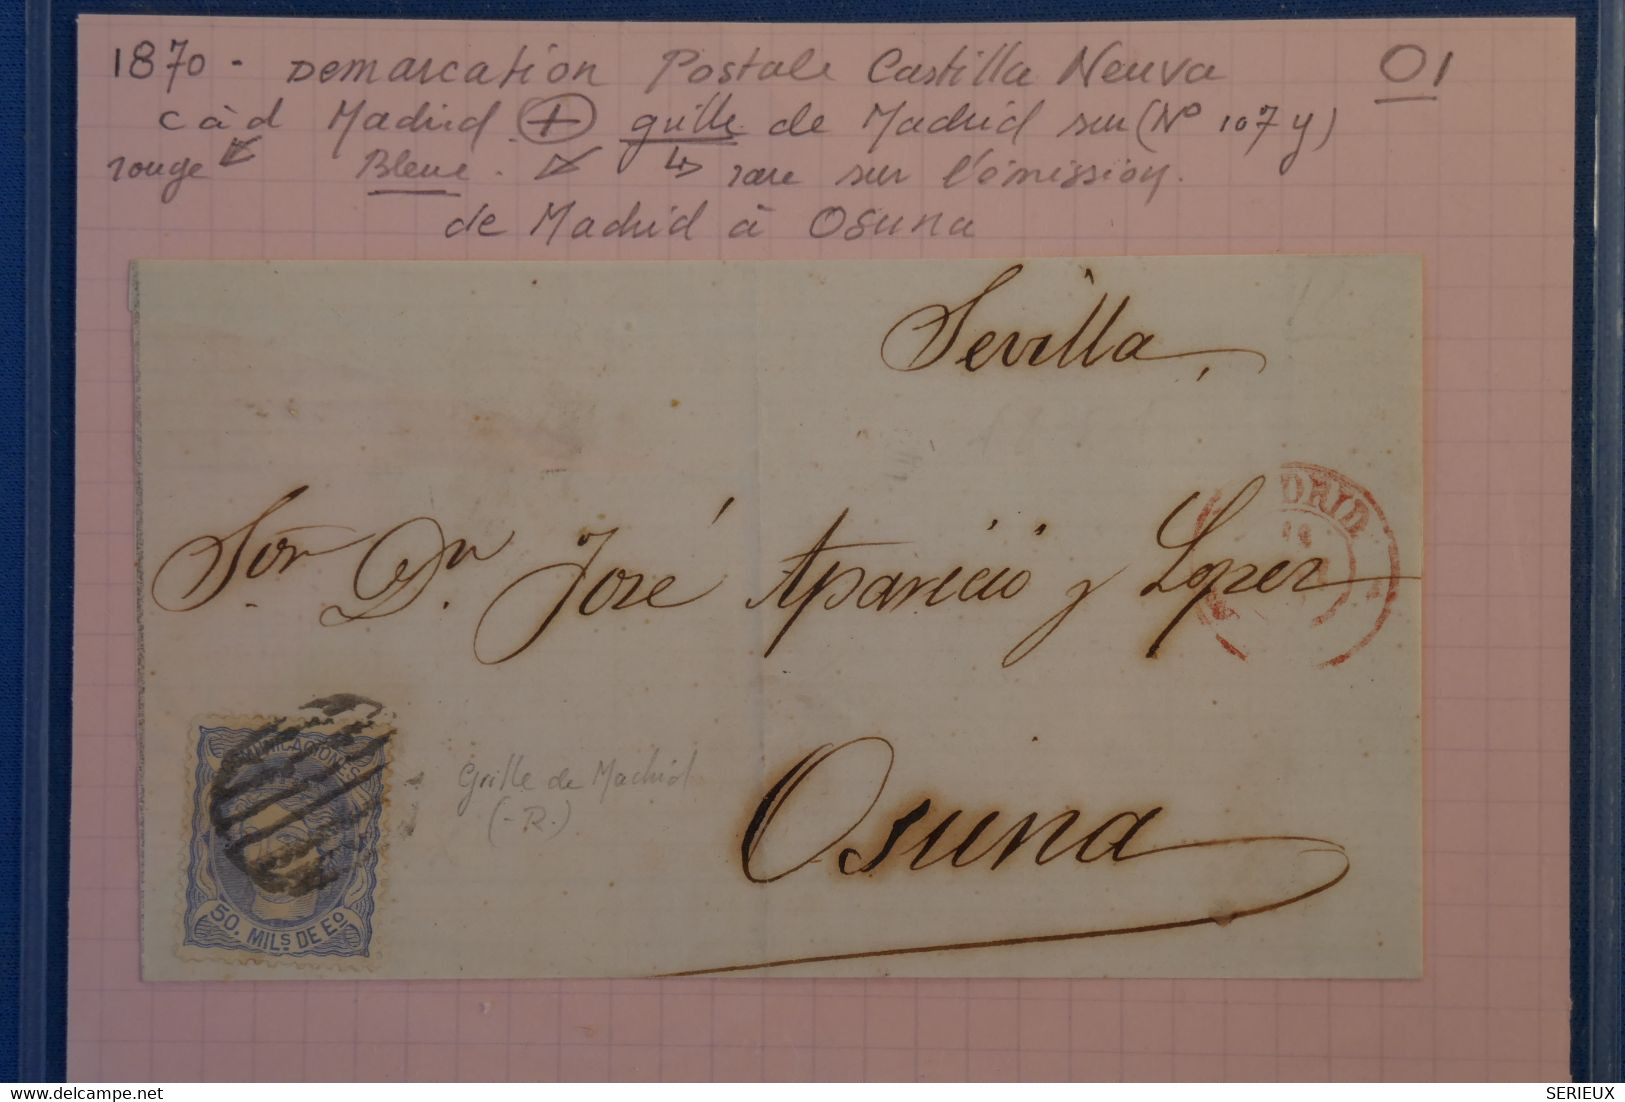 1870 - Demarcation Postale Castilla Neuva 01
c à d Madrid + grille de Madrid sur (N° 107 y)
rouge Bleue. rare sur l'émission.
de Madrid à Osuna
Sevilla
MADRID
Sor. Dn. José Aparicio y Lopez
COMUNICACIONES
Grille de Madrid
(-R.)
Osuna
50. MILS DE Eo
www.delcampe.net
SERIEUX